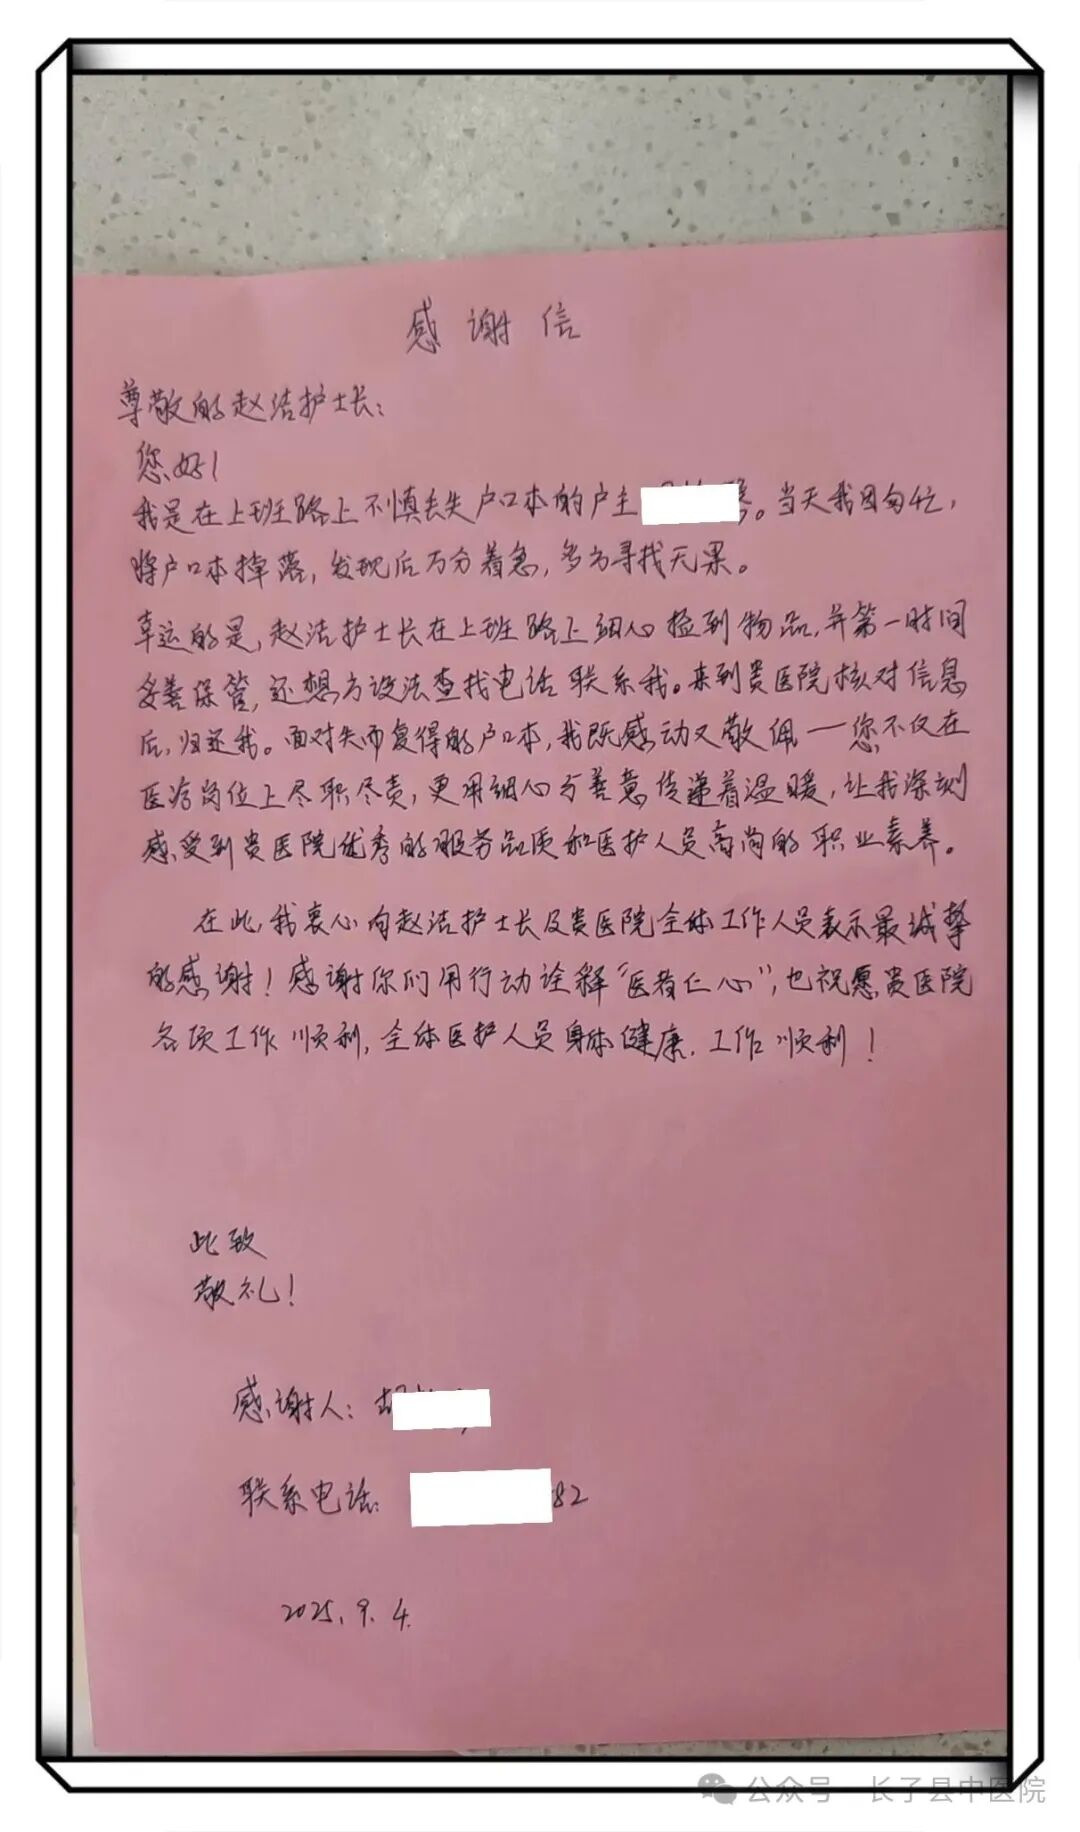 感谢信
尊敬的赵洁护士长：
您好！
我是在上班路上不慎丢失户口本的户主。当天我因匆忙，
将户口本掉落，发现后万分着急，多方寻找无果。
幸运的是，赵洁护士长在上班路上细心捡到物品，并第一时间
妥善保管，还想方设法查找电话联系我。来到贵医院核对信息
后，归还我。面对失而复得的户口本，我既感动又敬佩—您不仅在
医疗岗位上尽职尽责，更用细心与善意传递着温暖，让我深刻
感受到贵医院优秀的服务品质和医护人员高尚的职业素养。
在此，我衷心向赵洁护士长及贵医院全体工作人员表示最诚挚
的感谢！感谢你们用行动诠释“医者仁心”，也祝愿贵医院
各项工作顺利，全体医护人员身体健康、工作顺利！
此致
敬礼！
感谢人：胡
联系电话：82
2025.9.4.
公众号 长子县中医院